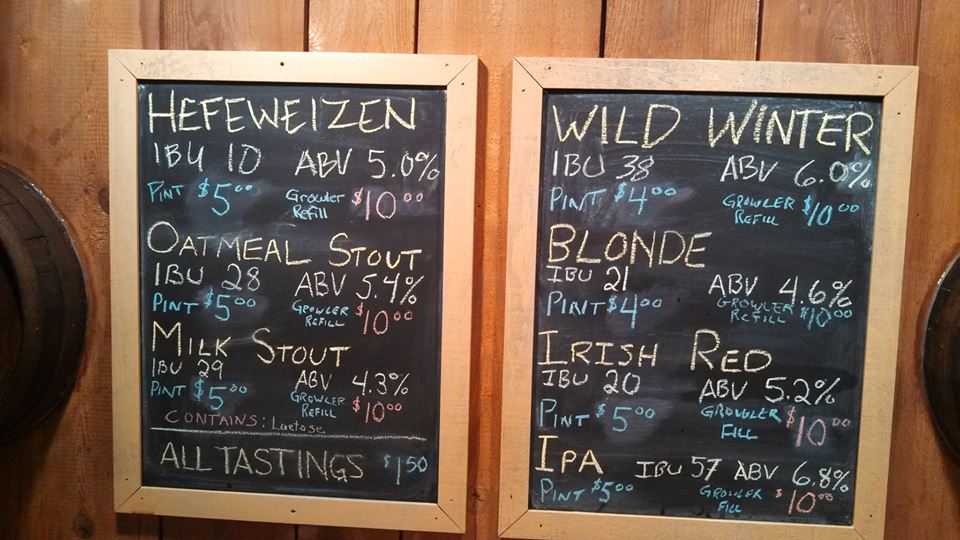 HEFEWEIZEN
IBU 10 ABV 5.0%
PINT $5.00 Growler Refill $10.00
OATMEAL STOUT
IBU 28 ABV 5.4%
PINT $5.00 GROWLER REFILL $10.00
MILK STOUT
IBU 29 ABV 4.3%
PINT $5.00 GROWLER REFILL $10.00
CONTAINS: Lactose
ALL TASTINGS $1.50
WILD WINTER
IBU 38 ABV 6.0%
PINT $4.00 GROWLER REFILL $10.00
BLONDE
IBU 21 ABV 4.6%
PINT $4.00 GROWLER REFILL $10.00
IRISH RED
IBU 20 ABV 5.2%
PINT $5.00 GROWLER FILL $10.00
IPA IBU 57 ABV 6.8%
PINT $5.00 GROWLER FILL $10.00